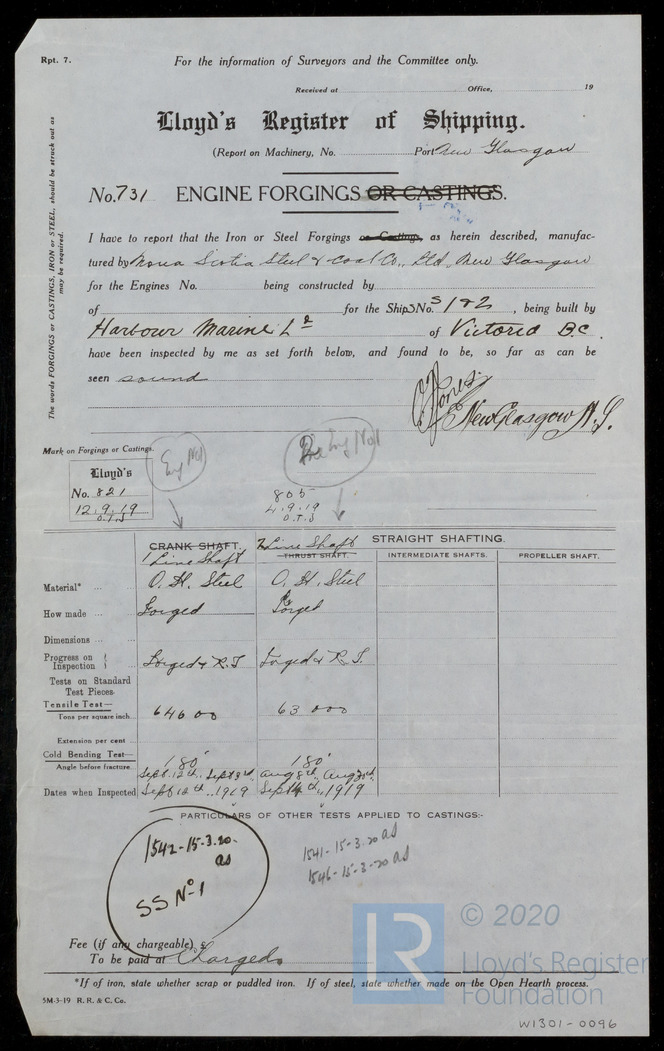 Rpt. 7.
For the information of Surveyors and the Committee only.
Received at Office, 19
Lloyd's Register of Shipping.
(Report on Machinery, No. Port New Glasgow
No. 731 ENGINE FORGINGS OR CASTINGS.
I have to report that the Iron or Steel Forgings or Castings, as herein described, manufac-
tured by Nova Scotia Steel & Coal Co., Ltd, New Glasgow
for the Engines No. being constructed by
of for the Ship No. S/182, being built by
Harbour Marine Ld of Victoria B.C.
have been inspected by me as set forth below, and found to be, so far as can be
seen sound
New Glasgow N.S.
The words FORGINGS or CASTINGS, IRON or STEEL, should be struck out as
may be required.
Mark on Forgings or Castings.
Eng No1
Eng No1
Lloyd's
No. 821
12.9.19
O.T.J
805
4.9.19
O.T.J
CRANK SHAFT.
1 Line Shaft
2 Line Shaft
THRUST SHAFT.
STRAIGHT SHAFTING.
INTERMEDIATE SHAFTS. PROPELLER SHAFT.
Material* O. H. Steel O. H. Steel
How made Forged Forged
Dimensions
Progress on Inspection Forged & R.T Forged & R.T.
Tests on Standard
Test Pieces-
Tensile Test—
Tons per square inch 64600 63000
Extension per cent
Cold Bending Test—
Angle before fracture 180° 180°
Sept. 12th, Sept 3rd, Aug 8th, Aug
Dates when Inspected Sept 12th, 1919 Sept 4th, 1919
PARTICULARS OF OTHER TESTS APPLIED TO CASTINGS:-
1542-15.3.20.
as
SS No 1
1541-15-3.20 as
1546-15-3-20 as
Fee (if any chargeable) £
To be paid at Charged
*If of iron, state whether scrap or puddled iron. If of steel, state whether made on the Open Hearth process.
5M-3-19 R. R. & C. Co.
LR
© 2020
Lloyd's Register
Foundation
W1301-0096